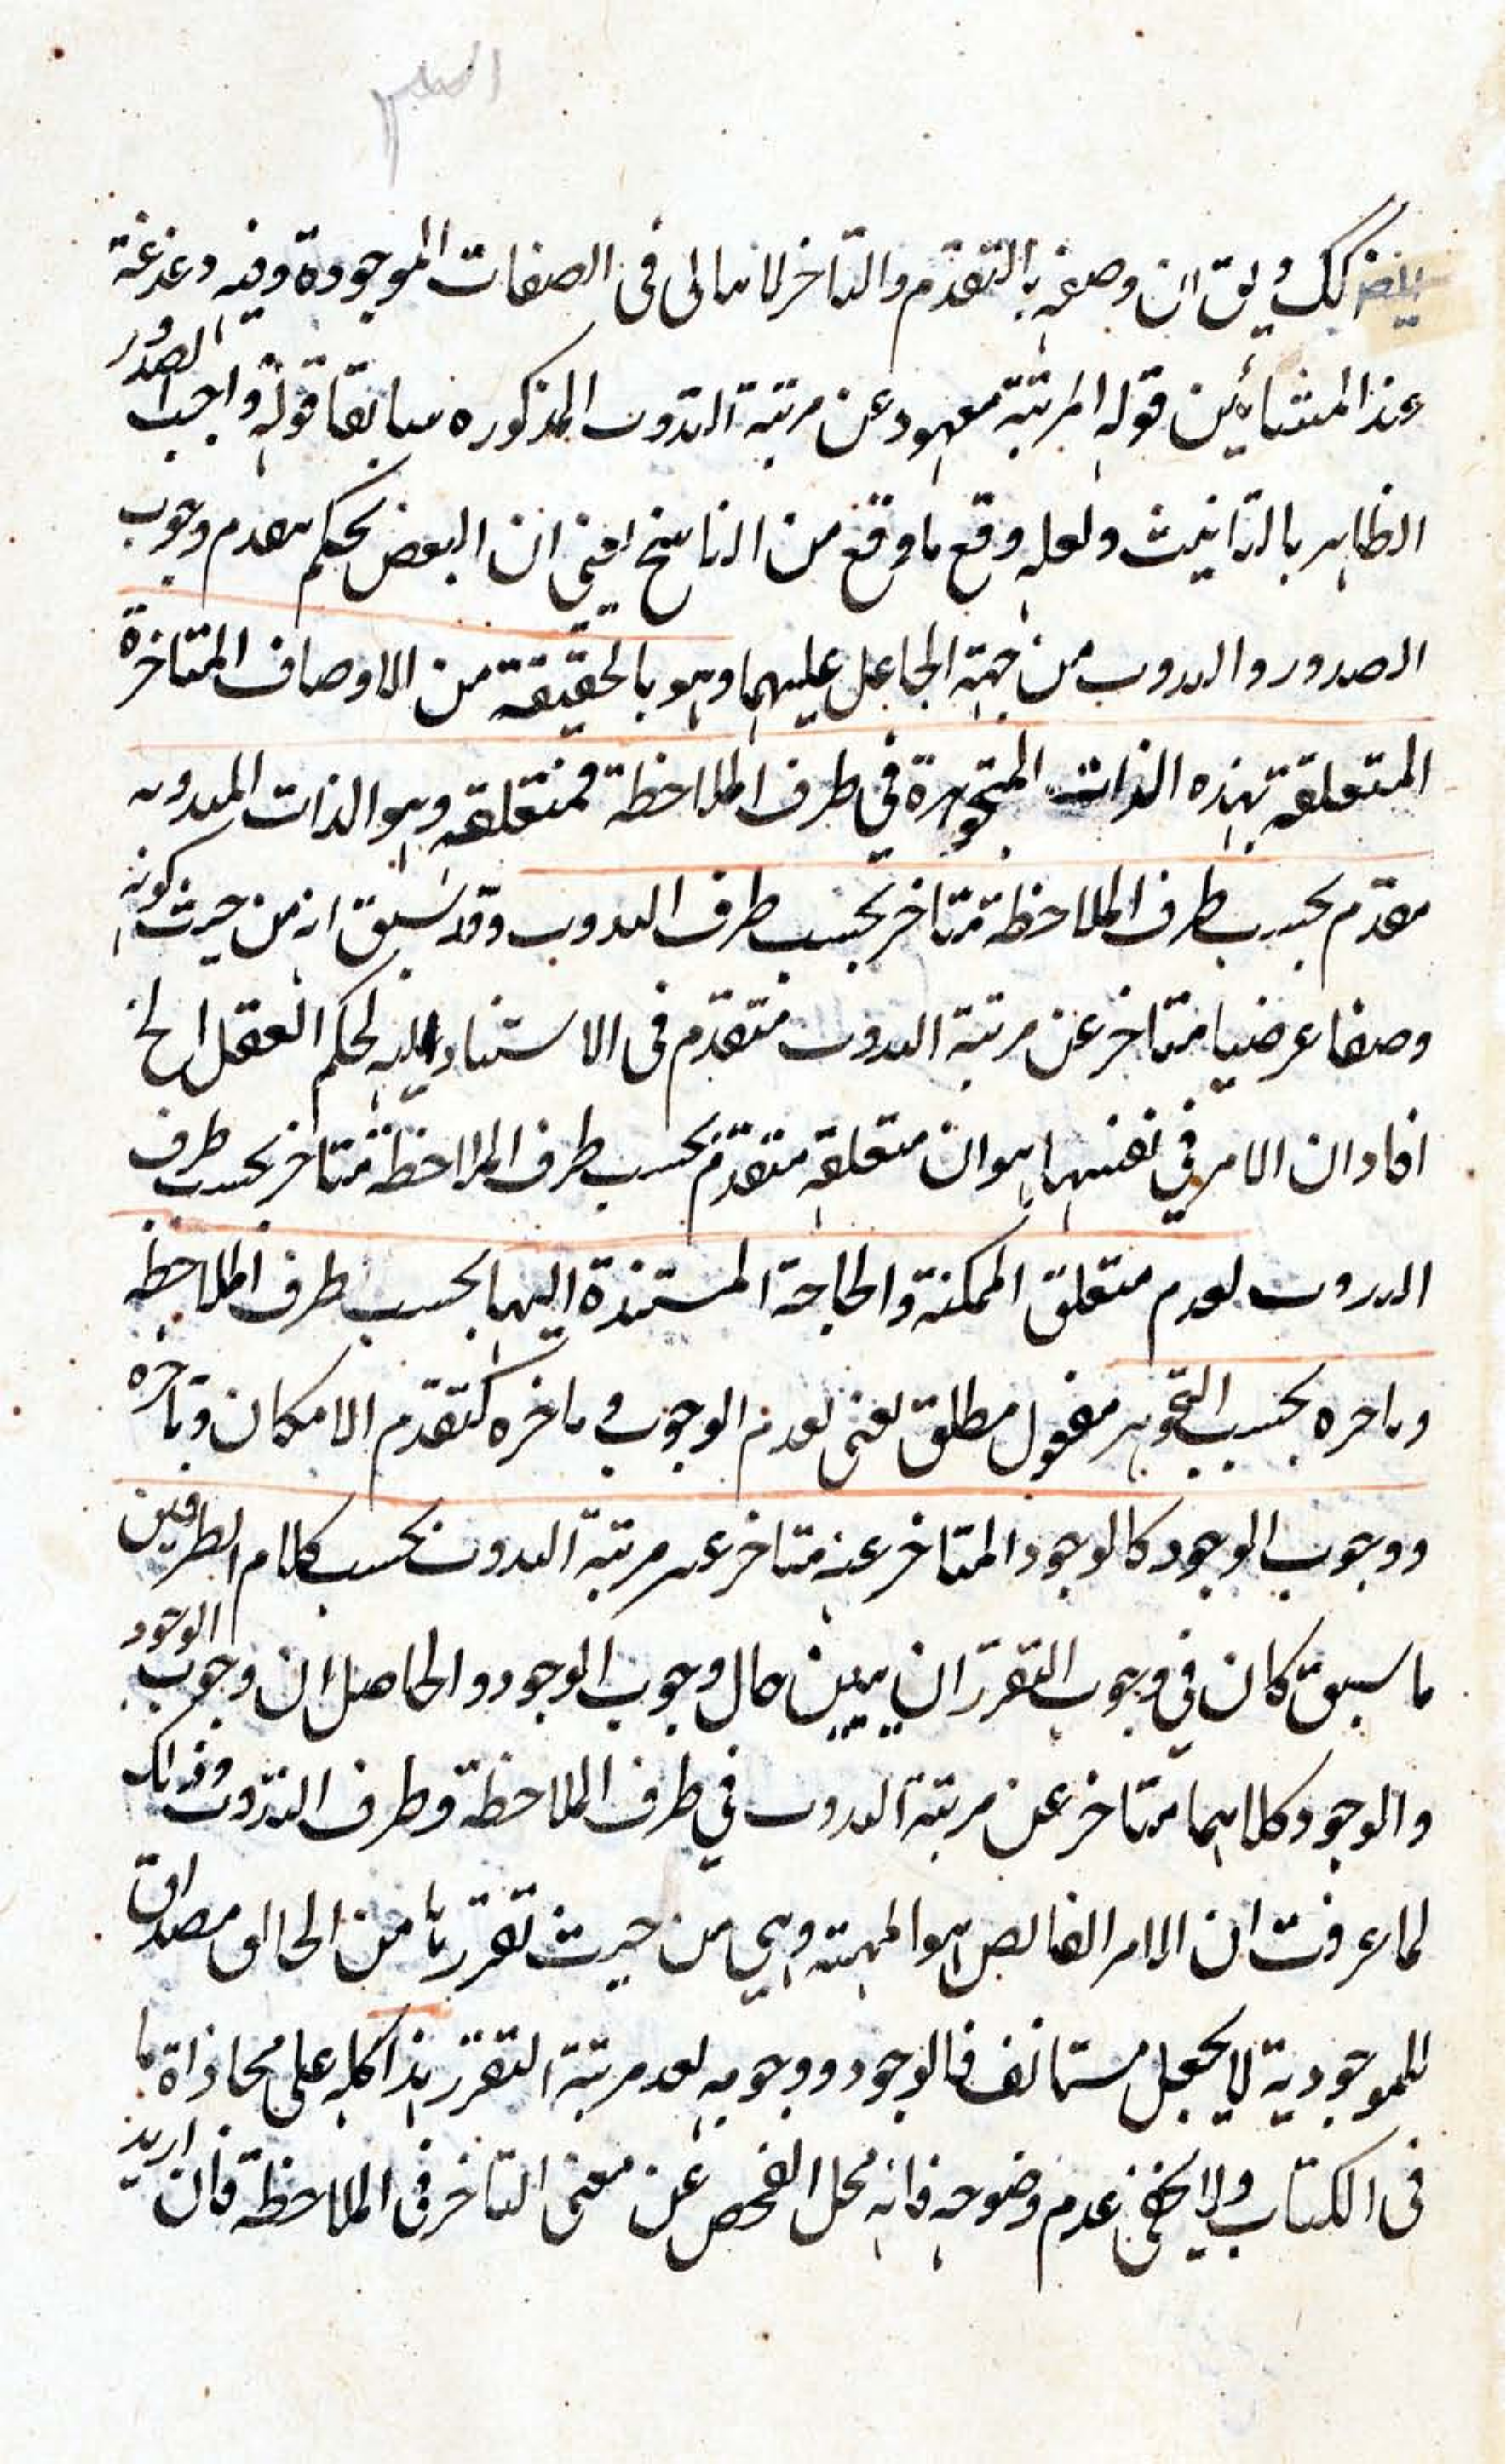 كك ويق ان وصفه بالتقدم والتاخر لانها لى فى الصفات الموجودة وفيه دغدغة
عند المشائين قوله المرتبة معهود عن مرتبة الذوت المذكوره سابقا قوله واجب الصدور
الظاهر بالتانيث ولعله وقع ما وقع من الناسخ يعنى ان البعض يحكم بعدم وجوب
الصدور والذوت من جهة الجاعل عليهما وهو بالحقيقة من الاوصاف المتاخرة
المتعلقه بهذه الذات المتجوهرة في ظرف الملاحظة فمتعلقه وهو الذات المذوته
مقدم بحسب ظرف الملاحظة متاخر بحسب ظرف الذوت وقد سبق انه من حيث كونه
وصفا عرضيا متاخر عن مرتبة الذوت متقدم فى الاستناد اليه لحكم العقل الخ
افاد ان الامر في نفسها هو ان متعلقه متقدم بحسب ظرف الملاحظة متاخر بحسب ظرف
الذوت لعدم متعلق الممكنة والحاجة المستندة اليها بحسب ظرف الملاحظه
وتاخره بحسب التجوهر مفعول مطلق يعنى لعدم الوجوب وتاخره كتقدم الامكان وتاخره
ووجوب الوجود كالوجود المتاخر عنه متاخر عن مرتبة الذوت بحسب كلام الطرفين
ما سبق كان في وجوب التقرر ان يبين حال وجوب الوجود والحاصل ان وجوب الوجود
والوجود كلاهما متاخر عن مرتبة الذوت في ظرف الملاحظة وظرف التذوت وذلك
لما عرفت ان الامر الفائض هو المهية وهي من حيث تقررها من الجاعل مصداق
للموجودية لا بجعل مستانف فالوجود ووجوبه بعد مرتبة التقرر هذا كله على محاذاة ما
فى الكتاب ولا يخفى عدم وضوحه فانه محل الفحص عن معنى التاخر فى الملاحظة فان اريد